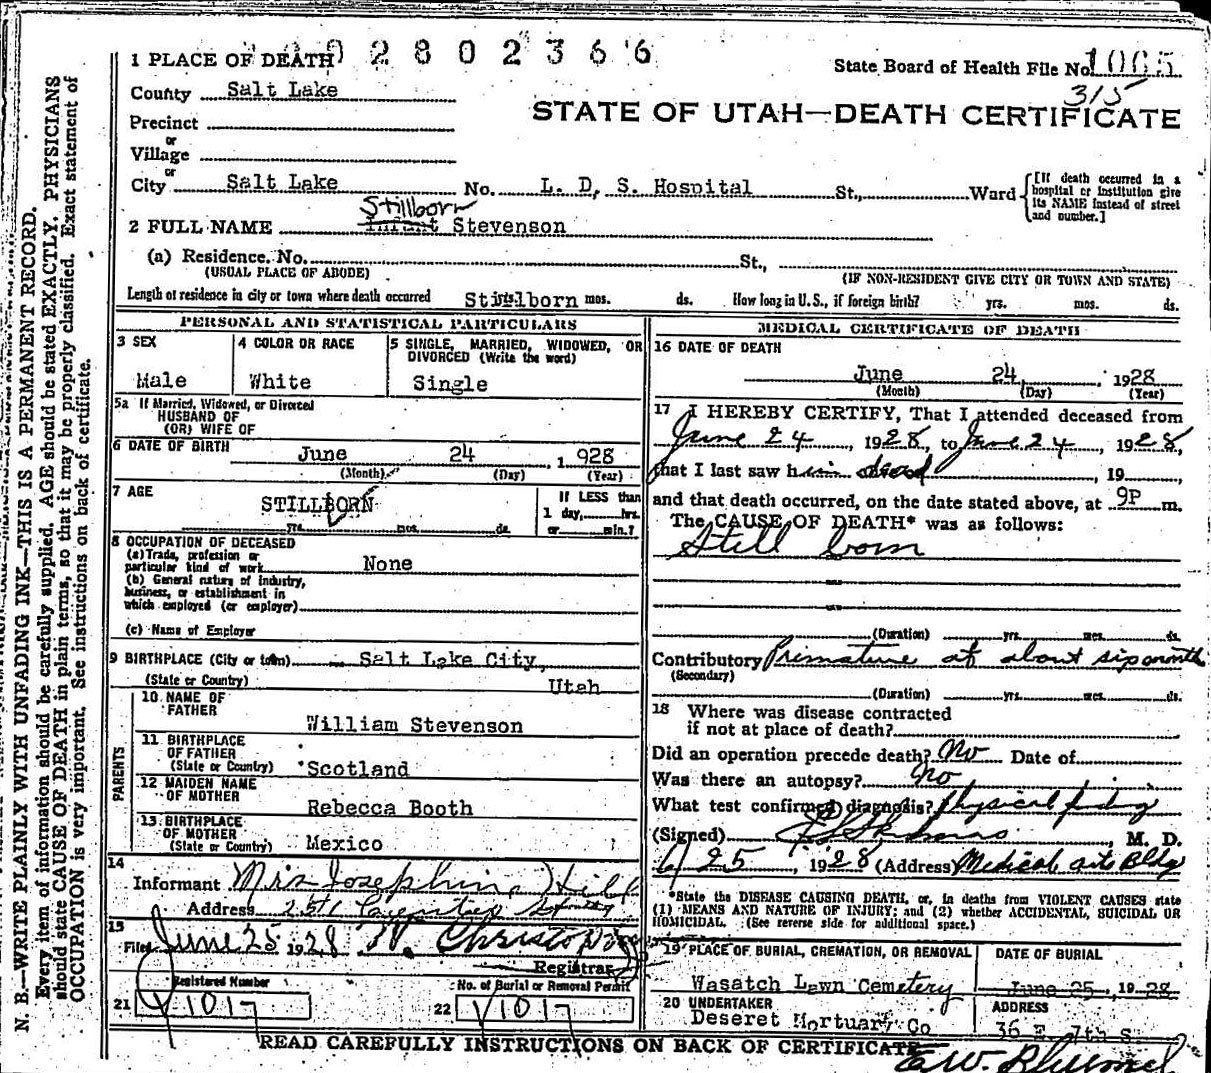 N. B.—WRITE PLAINLY WITH UNFADING INK—THIS IS A PERMANENT RECORD.
Every item of information should be carefully supplied. AGE should be stated EXACTLY. PHYSICIANS
should state CAUSE OF DEATH in plain terms, so that it may be properly classified. Exact statement of
OCCUPATION is very important. See instructions on back of certificate.
1 PLACE OF DEATH 2 8 0 2 3 6 6
State Board of Health File No. 1065
315
County Salt Lake
STATE OF UTAH—DEATH CERTIFICATE
Precinct
or
Village
or
City Salt Lake No. L. D. S. Hospital St., Ward
[If death occurred in a
hospital or institution give
its NAME instead of street
and number.]
Stillborn
2 FULL NAME Infant Stevenson
(a) Residence. No. St.,
(USUAL PLACE OF ABODE) (IF NON-RESIDENT GIVE CITY OR TOWN AND STATE)
Length of residence in city or town where death occurred Stillborn mos. ds. How long in U.S., if foreign birth? yrs. mos. ds.
PERSONAL AND STATISTICAL PARTICULARS
3 SEX
Male
4 COLOR OR RACE
White
5 SINGLE, MARRIED, WIDOWED, OR
DIVORCED (Write the word)
Single
5a If Married, Widowed, or Divorced
HUSBAND OF
(OR) WIFE OF
6 DATE OF BIRTH June 24, 1928
(Month) (Day) (Year)
7 AGE
STILLBORN
yrs. mos. ds.
If LESS than
1 day, hrs.
or min.?
8 OCCUPATION OF DECEASED
(a) Trade, profession or
particular kind of work None
(b) General nature of industry,
business, or establishment in
which employed (or employer)
(c) Name of Employer
9 BIRTHPLACE (City or town) Salt Lake City,
(State or Country) Utah
PARENTS
10 NAME OF
FATHER
William Stevenson
11 BIRTHPLACE
OF FATHER
(State or Country) Scotland
12 MAIDEN NAME
OF MOTHER
Rebecca Booth
13 BIRTHPLACE
OF MOTHER
(State or Country) Mexico
14
Informant Mrs Josephine Hill
Address 251
15
Filed June 25 1928
Registrar
Registered Number
21 1017
No. of Burial or Removal Permit
22 1017
MEDICAL CERTIFICATE OF DEATH
16 DATE OF DEATH
June 24, 1928
(Month) (Day) (Year)
17 I HEREBY CERTIFY, That I attended deceased from
June 24, 1928, to June 24, 1928,
that I last saw him dead, 19
and that death occurred, on the date stated above, at 9P m.
The CAUSE OF DEATH* was as follows:
Still born
(Duration) yrs. mos. ds.
Contributory Premature at about six month
(Secondary)
(Duration) yrs. mos. ds.
18 Where was disease contracted
if not at place of death?
Did an operation precede death? No Date of
Was there an autopsy? no
What test confirmed diagnosis? Physical finding
(Signed) M. D.
6/25, 1928 (Address) Medical arts Bldg
*State the DISEASE CAUSING DEATH, or, in deaths from VIOLENT CAUSES state
(1) MEANS AND NATURE OF INJURY; and (2) whether ACCIDENTAL, SUICIDAL OR
HOMICIDAL. (See reverse side for additional space.)
19 PLACE OF BURIAL, CREMATION, OR REMOVAL
Wasatch Lawn Cemetery
DATE OF BURIAL
June 25, 1928
20 UNDERTAKER
Deseret Mortuary Co
ADDRESS
36 E. 7th S.
READ CAREFULLY INSTRUCTIONS ON BACK OF CERTIFICATE